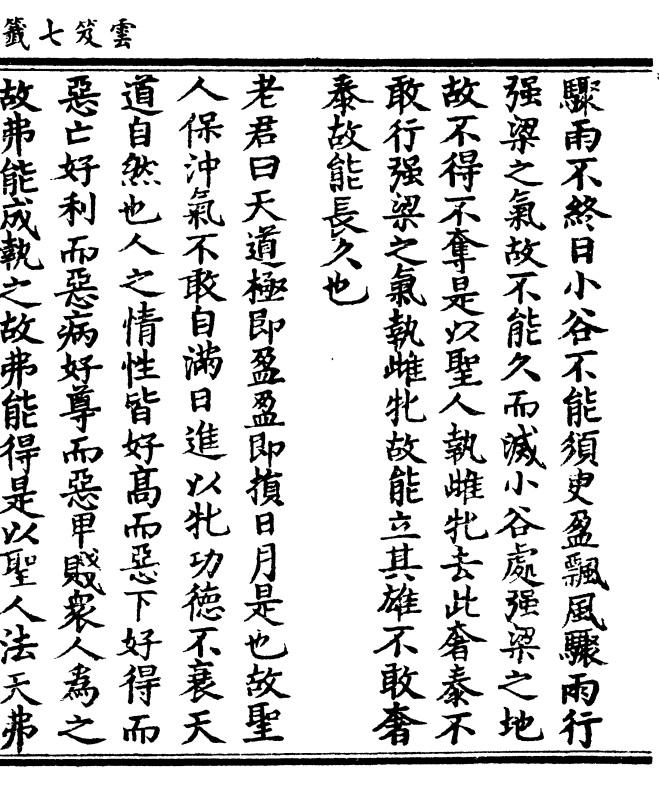 雲笈七籤
驟雨不終日小谷不能須臾盈飄風驟雨行
强梁之氣故不能久而滅小谷處强梁之地
故不得不奪是以聖人執雌牝去此奢泰不
敢行强梁之氣執雌牝故能立其雄不敢奢
泰故能長久也
老君曰天道極即盈盈即損日月是也故聖
人保沖氣不敢自滿日進以牝功德不衰天
道自然也人之情性皆好高而惡下好得而
惡亡好利而惡病好尊而惡卑賤衆人為之
故弗能成執之故弗能得是以聖人法天弗